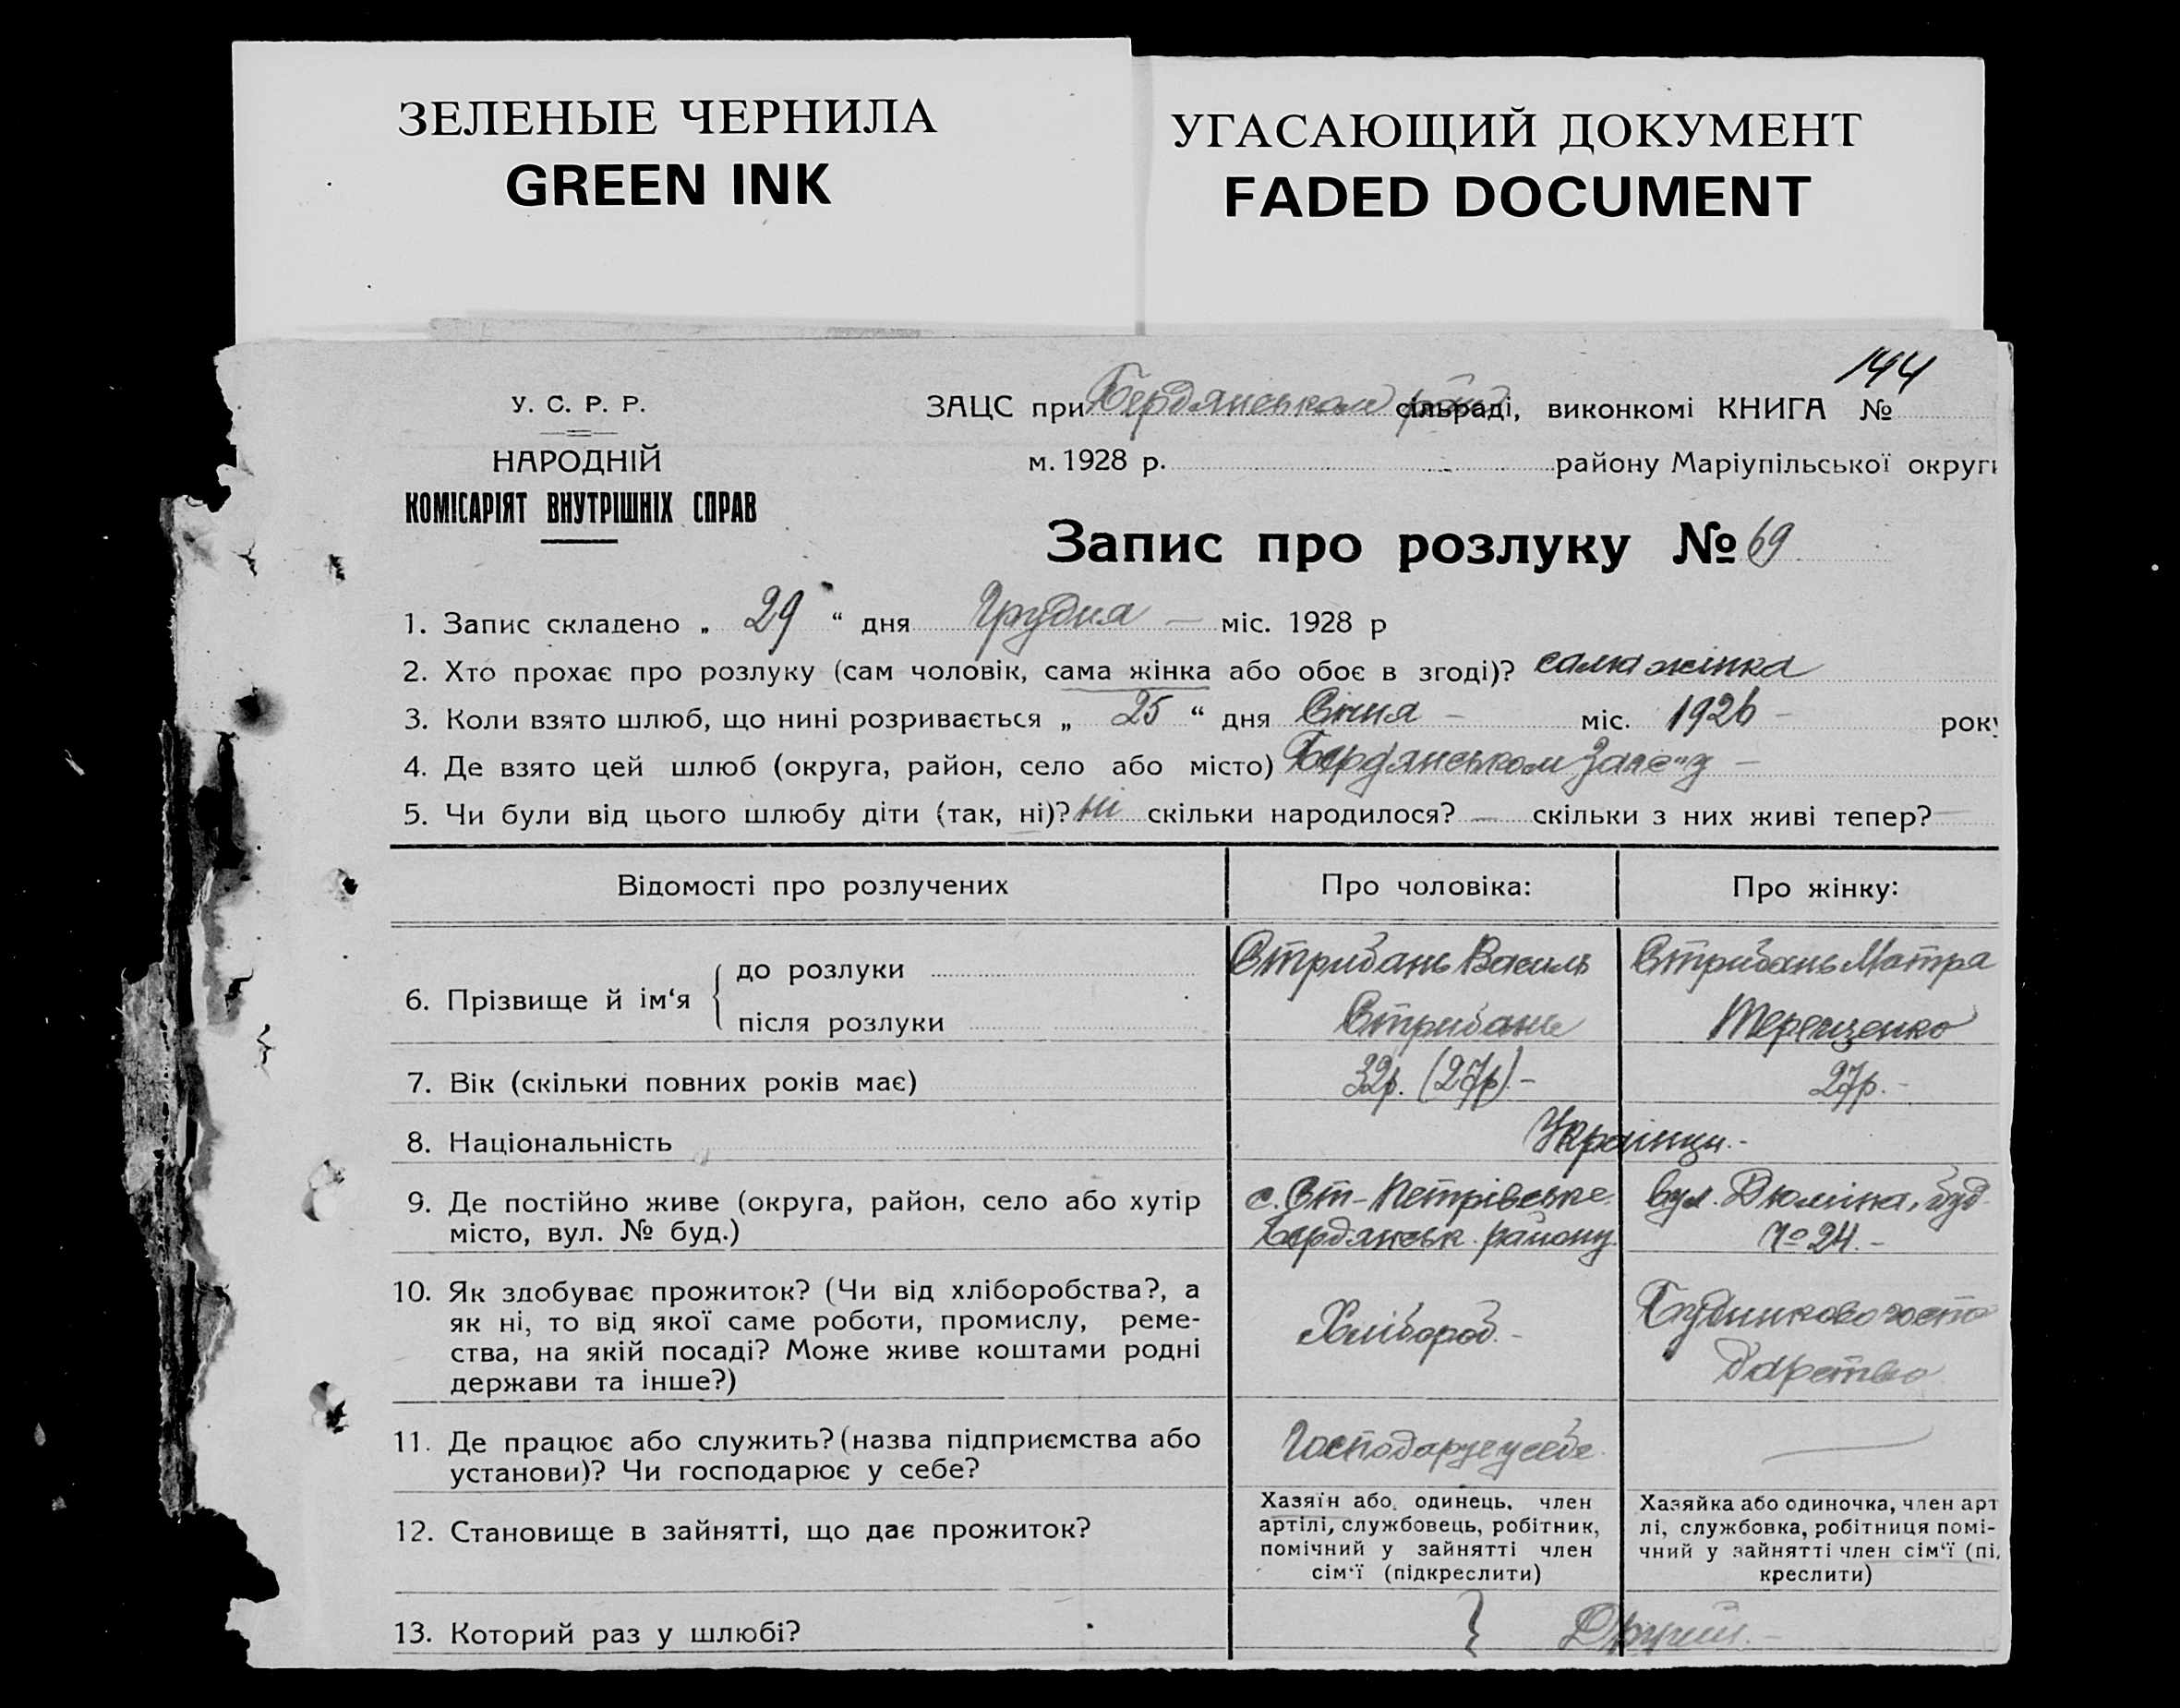 ЗЕЛЕНЫЕ ЧЕРНИЛА
GREEN INK
УГАСАЮЩИЙ ДОКУМЕНТ
FADED DOCUMENT
144
У. С. Р. Р.
НАРОДНІЙ
КОМІСАРІЯТ ВНУТРІШНІХ СПРАВ
ЗАЦС при Бердянськом сільраді, виконкомі КНИГА №
м. 1928 р. району Маріупільської округи
Запис про розлуку № 69
1. Запис складено „ 29 “ дня Грудня — міс. 1928 р
2. Хто прохає про розлуку (сам чоловік, сама жінка або обоє в згоді)? сама жінка
3. Коли взято шлюб, що нині розривається „ 25 “ дня Січня – міс. 1926 – року
4. Де взято цей шлюб (округа, район, село або місто) Бердянськом
5. Чи були від цього шлюбу діти (так, ні)? ні скільки народилося? — скільки з них живі тепер? —
Відомості про розлучених Про чоловіка: Про жінку:
6. Прізвище й ім‘я
до розлуки Стрибань Василь Стрибань Мотра
після розлуки Стрибань Терещенко
7. Вік (скільки повних років має) 32р. (27р) – 27р. –
8. Національність Українци. –
9. Де постійно живе (округа, район, село або хутір с. Ст–Петрівське вул. Дюміна, буд
місто, вул. № буд.) Бердянськ. району № 24. –
10. Як здобуває прожиток? (Чи від хліборобства?, а
як ні, то від якої саме роботи, промислу, реме-
ства, на якій посаді? Може живе коштами родні
держави та інше?)
Хлібороб. –
Будинково госпо
дарство
11. Де працює або служить? (назва підприємства або
установи)? Чи господарює у себе?
Господарує у себе
12. Становище в зайнятті, що дає прожиток?
Хазяїн або одинець, член
артілі, службовець, робітник,
помічний у зайнятті член
сім‘ї (підкреслити)
Хазяйка або одиночка, член арт
лі, службовка, робітниця помі-
чний у зайнятті член сім‘ї (пі.
креслити)
13. Которий раз у шлюбі? } Другий. –